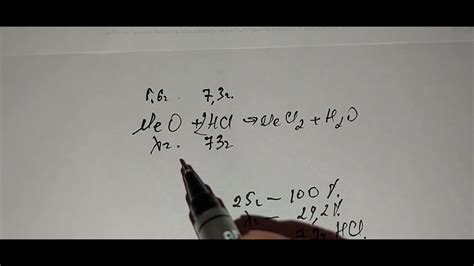 5,6г. 7,3г.
MeO + 2HCl → MeCl₂ + H₂O
xг. 73г
25г — 100%
xг — 29,2%
HCl